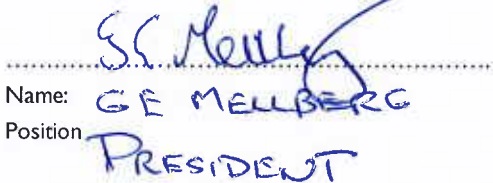 Name: GE MELLBERG
Position PRESIDENT